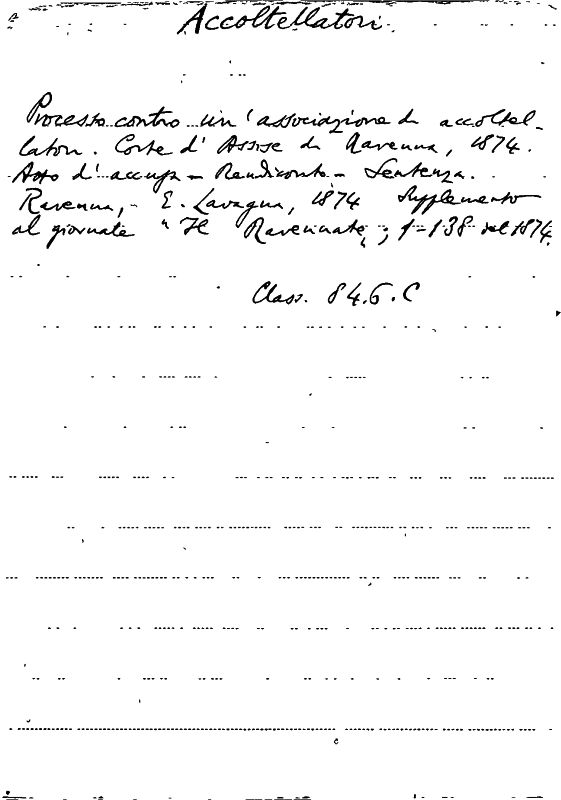 Accoltellatori
Processo contro un'associazione di accoltel-
latori. Corte d'Assise di Ravenna, 1874.
Atto d'accusa - Rendiconto - Sentenza.
Ravenna, E. Lavagna, 1874 Supplemento
al giornale "Il Ravennate", 1-138 del 1874.
Class. 84.6.C